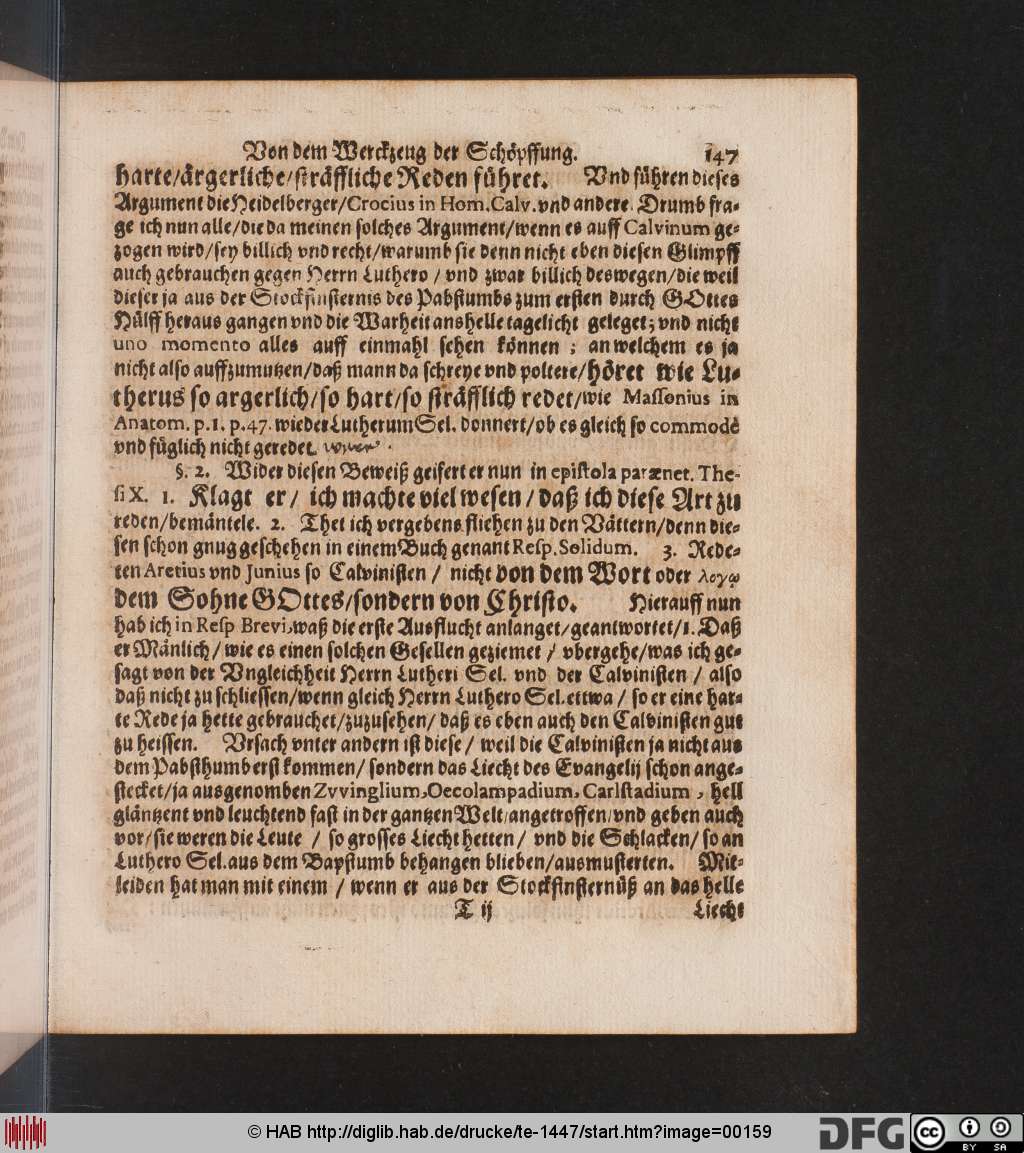 Von dem Werckzeug der Schöpffung. 147
harte/ärgerliche/sträffliche Reden führet. Vnd führen dieses
Argument die Heidelberger/Crocius in Hom. Calv. vnd andere. Drumb fra-
ge ich nun alle/die da meinen solches Argument/wenn es auff Calvinum ge-
zogen wird/sey billich vnd recht/warumb sie denn nicht eben diesen Glimpff
auch gebrauchen gegen Herrn Luthero / vnd zwar billich deswegen/die weil
dieser ja aus der Stockfinsternis des Pabstumbs zum ersten durch GOttes
Hülff heraus gangen vnd die Warheit ans helle tagelicht geleget; vnd nicht
uno momento alles auff einmahl sehen können ; an welchem es ja
nicht also auffzumutzen/daß mann da schreye vnd poltere/höret wie Lu-
therus so argerlich/so hart/so sträfflich redet/wie Massonius in
Anatom. p. 1. p. 47. wieder Lutherum Sel. donnert/ob es gleich so commodè
vnd füglich nicht geredet.
§. 2. Wider diesen Beweiß geifert er nun in epistola parænet. The-
si X. 1. Klagt er/ ich machte viel wesen / daß ich diese Art zu
reden/bemäntele. 2. Thet ich vergebens fliehen zu den Vättern/denn die-
sen schon gnug geschehen in einem Buch genant Resp. Solidum. 3. Rede-
ten Aretius vnd Junius so Calvinisten / nicht von dem Wort oder λογῳ
dem Sohne GOttes/sondern von Christo. Hierauff nun
hab ich in Resp Brevi, waß die erste Ausflucht anlanget/geantwortet/1. Daß
er Mänlich/ wie es einen solchen Gesellen geziemet / vbergehe/was ich ge-
sagt von der Vngleichheit Herrn Lutheri Sel. vnd der Calvinisten / also
daß nicht zu schliessen/wenn gleich Herrn Luthero Sel. ettwa / so er eine har-
te Rede ja hette gebrauchet/zuzusehen/ daß es eben auch den Calvinisten gut
zu heissen. Vrsach vnter andern ist diese / weil die Calvinisten ja nicht aus
dem Pabsthumb erst kommen/ sondern das Liecht des Evangelij schon ange-
stecket/ja ausgenomben Zvvinglium, Oecolampadium, Carlstadium , hell
gläntzent vnd leuchtend fast in der gantzen Welt/angetroffen/vnd geben auch
vor/sie weren die Leute / so grosses Liecht hetten / vnd die Schlacken/ so an
Luthero Sel. aus dem Bapstumb behangen blieben/ausmusterten. Mit-
leiden hat man mit einem / wenn er aus der Stockfinsternüß an das helle
T ij Liecht
© HAB http://diglib.hab.de/drucke/te-1447/start.htm?image=00159
DFG
cc BY SA